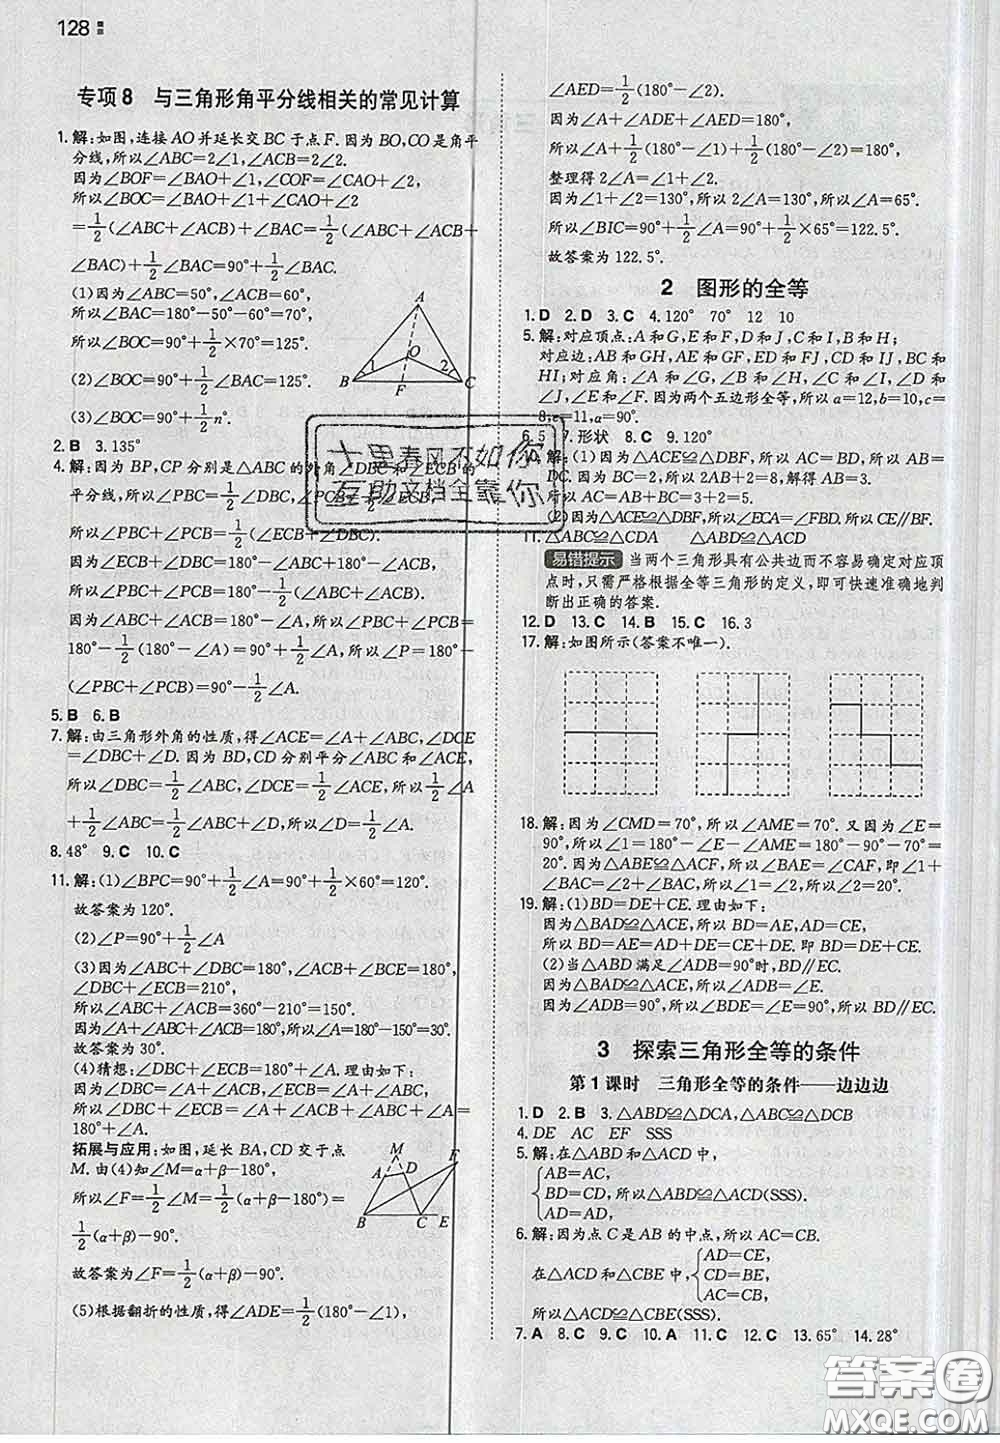 128
专项8 与三角形角平分线相关的常见计算
1.解:如图,连接AO并延长交BC于点F.因为BO,CO是角平
分线,所以∠ABC=2∠1,∠ACB=2∠2.
因为∠BOF=∠BAO+∠1,∠COF=∠CAO+∠2,
所以∠BOC=∠BAO+∠1+∠CAO+∠2
=1/2(∠ABC+∠ACB)+∠BAC=1/2(∠ABC+∠ACB+
∠BAC)+1/2∠BAC=90°+1/2∠BAC.
(1)因为∠ABC=50°,∠ACB=60°,
所以∠BAC=180°-50°-60°=70°,
所以∠BOC=90°+1/2×70°=125°.
(2)∠BOC=90°+1/2∠BAC=125°.
(3)∠BOC=90°+1/2n°.
A
O
1
2
B
F
C
2.B 3.135°
4.解:因为BP,CP分别是△ABC的外角∠DBC和∠ECB的
平分线,所以∠PBC=1/2∠DBC,∠PCB=1/2∠ECB,
所以∠PBC+∠PCB=1/2(∠DBC+∠ECB)=1/2(180°-
∠ABC+180°-∠ACB)=180°-1/2(∠ABC+∠ACB).
因为∠ABC+∠ACB=180°-∠A,所以∠PBC+∠PCB=
180°-1/2(180°-∠A)=90°+1/2∠A,所以∠P=180°-
(∠PBC+∠PCB)=90°-1/2∠A.
5.B 6.B
7.解:由三角形外角的性质,得∠ACE=∠A+∠ABC,∠DCE
=∠DBC+∠D.因为BD,CD分别平分∠ABC和∠ACE,
所以∠DBC=1/2∠ABC,∠DCE=1/2∠ACE,所以1/2∠A
+1/2∠ABC=1/2∠ABC+∠D,所以∠D=1/2∠A.
8.48° 9.C 10.C
11.解:(1)∠BPC=90°+1/2∠A=90°+1/2×60°=120°.
故答案为120°.
(2)∠P=90°+1/2∠A
(3)因为∠ABC+∠DBC=180°,∠ACB+∠BCE=180°,
∠DBC+∠ECB=210°,
所以∠ABC+∠ACB=360°-210°=150°.
因为∠A+∠ABC+∠ACB=180°,所以∠A=180°-150°=30°.
故答案为30°.
(4)猜想:∠DBC+∠BCE=180°+∠A.
因为∠DBC+∠ABC=180°,∠BCE+∠ACB=180°,∠A+
∠ABC+∠ACB=180°,所以∠DBC+∠BCE=360°-
(180°-∠A)=180°+∠A.
拓展与应用:如图,延长BA,CD交于点
M.由(4)知∠M=∠α+∠β-180°,
所以∠F=1/2∠M=1/2(α+β-180°)=
1/2(α+β)-90°.
故答案为∠F=1/2(α+β)-90°.
M
A
D
F
B
C
E
(5)根据翻折的性质,得∠ADE=1/2(180°-∠1),
∠AED=1/2(180°-∠2).
因为∠A+∠ADE+∠AED=180°,
所以∠A+1/2(180°-∠1)+1/2(180°-∠2)=180°,
整理得2∠A=∠1+∠2.
因为∠1+∠2=130°,所以2∠A=130°,所以∠A=65°.
所以∠BIC=90°+1/2∠A=90°+1/2×65°=122.5°.
故答案为122.5°.
2 图形的全等
1.D 2.D 3.C 4.120° 70° 12 10
5.解:对应顶点:A和G,E和F,D和J,C和I,B和H;
对应边:AB和GH,AE和GF,ED和FJ,CD和IJ,BC和
HI;对应角:∠A和∠G,∠B和∠H,∠C和∠I,∠D和∠J,
∠E和∠F.因为两个五边形全等,所以a=12,b=10,c=
8,e=11,α=90°.
6.5 7.形状 8.C 9.120°
10.解:(1)因为△ACE≌△DBF,所以AC=BD,所以AB=
DC.因为BC=2,所以AC=AB+BC=3+2=5.
(2)因为△ACE≌△DBF,所以∠ECA=∠FBD.所以CE∥BF.
11.△ABC≌△CDA △ABD≌△CDB
易错提示 当两个三角形具有公共边而不容易确定对应顶
点时,只需严格根据全等三角形的定义,即可快速准确地判
断出正确的答案.
12.D 13.C 14.B 15.C 16.3
17.解:如图所示(答案不唯一).
18.解:因为∠CMD=70°,所以∠AME=70°.又因为∠E=
90°,所以∠1=180°-∠E-∠AME=180°-90°-70°=
20°.因为△ABE≌△ACF,所以∠BAE=∠CAF,即∠1+
∠BAC=∠2+∠BAC,所以∠1=∠2=20°.
19.解:(1)BD=DE+CE.理由如下:
因为△BAD≌△ACE,所以BD=AE,AD=CE,
所以BD=AE=AD+DE=CE+DE.即BD=DE+CE.
(2)当△ABD满足∠ADB=90°时,BD∥EC.
因为△BAD≌△ACE,所以∠ADB=∠E.
因为∠ADB=90°,所以∠BDE=∠E=90°,所以BD∥EC.
3 探索三角形全等的条件
第1课时 三角形全等的条件——边边边
1.D 2.B 3.△ABD≌△DCA,△ABC≌△DCB
4.DE AC EF SSS
5.解:在△ABD和△ACD中,
{AB=AC,
BD=CD,所以△ABD≌△ACD(SSS).
AD=AD,
6.解:因为点C是AB的中点,所以AC=CB.
在△ACD和△CBE中,{AD=CE,
CD=BE,
AC=CB,
所以△ACD≌△CBE(SSS).
7.A 8.C 9.C 10.A 11.C 12.C 13.65° 14.28°
十里春风不如你
互助文档全靠你
答案圈
MXQE.COM